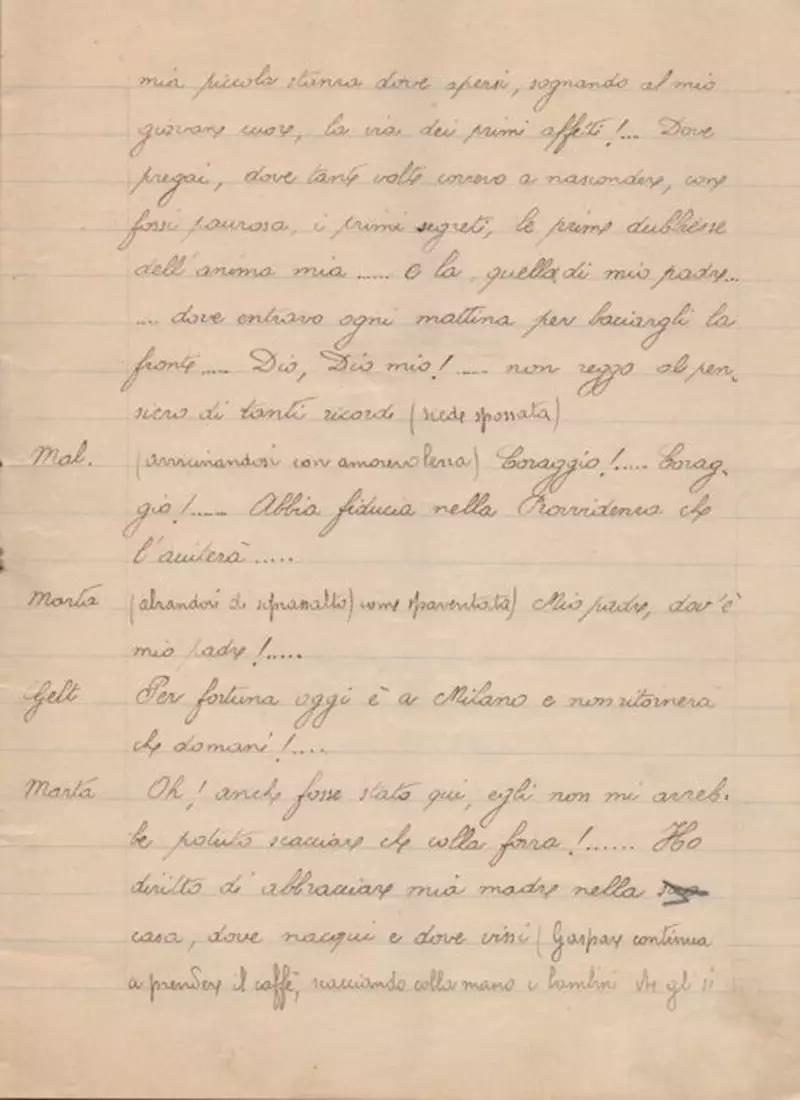 mia piccola stanza dove apersi, sognando al mio
giovane cuore, la via dei primi affetti!... Dove
pregai, dove tante volte correvo a nascondere, come
fossi paurosa, i primi segreti, le prime dubbiezze
dell'anima mia ...... O la quella di mio padre...
.... dove entravo ogni mattina per baciargli la
fronte ..... Dio, Dio mio! ..... non reggo al pen-
siero di tanti ricordi (siede spossata)
Mal. (avvicinandosi con amorevolezza) Coraggio!..... Corag-
gio!...... Abbia fiducia nella Provvidenza che
l'aiuterà .....
Marta (alzandosi di soprassalto) come spaventata) Mio padre, dov'è
mio padre!.....
Gelt Per fortuna oggi è a Milano e non ritornerà
che domani!....
Marta Oh! anche fosse stato qui, egli non mi avreb-
be potuto scacciare che colla forza!...... Ho
diritto di abbracciare mia madre nella
casa, dove nacqui e dove vissi (Gaspare continua
a prendere il caffè, scacciando colla mano i bambini che gli si